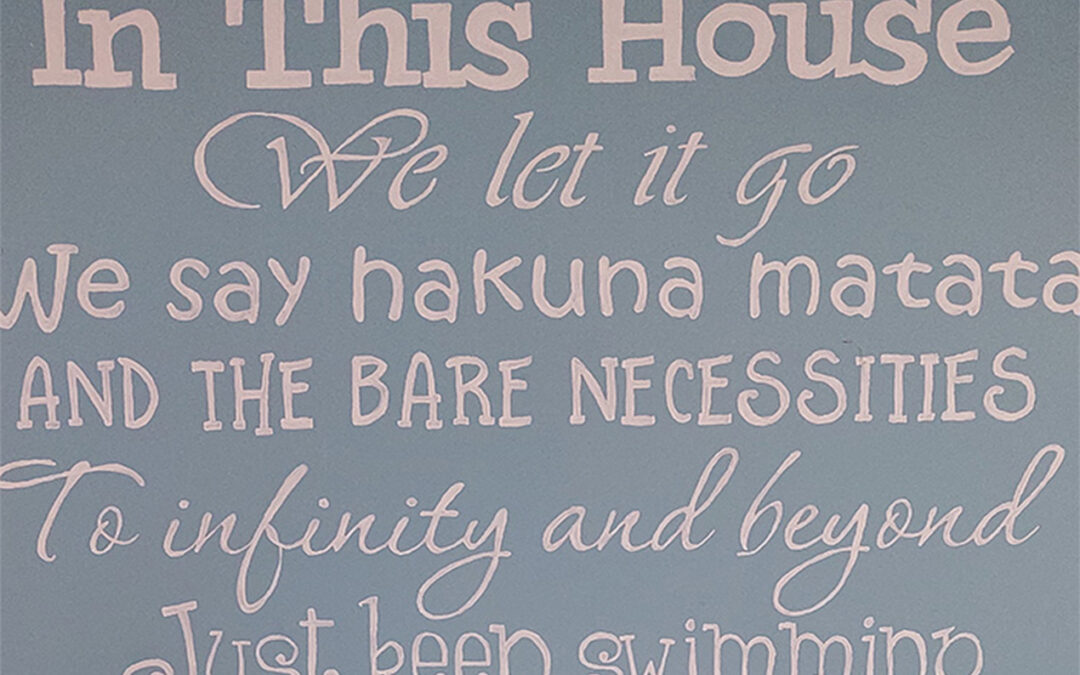 In This House
We let it go
We say hakuna matata
AND THE BARE NECESSITIES
To infinity and beyond
Just keep swimming